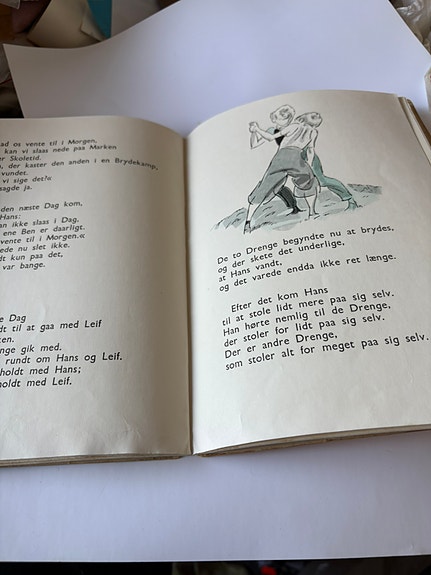 ad os vente til i Morgen.
kan vi slaas nede paa Marken
er Skoletid.
, der kaster den anden i en Brydekamp,
vundet.
vi sige det?«
sagde ja.
den næste Dag kom,
Hans:
an ikke slaas i Dag.
ene Ben er daarligt.
vente til i Morgen.«
ede nu slet ikke.
dt kun paa det,
var bange.
e Dag
dt til at gaa med Leif
ken.
nge gik med.
rundt om Hans og Leif.
holdt med Hans;
holdt med Leif.
De to Drenge begyndte nu at brydes,
og der skete det underlige,
at Hans vandt,
og det varede endda ikke ret længe.
Efter det kom Hans
til at stole lidt mere paa sig selv.
Han hørte nemlig til de Drenge,
der stoler for lidt paa sig selv.
Der er andre Drenge,
som stoler alt for meget paa sig selv.